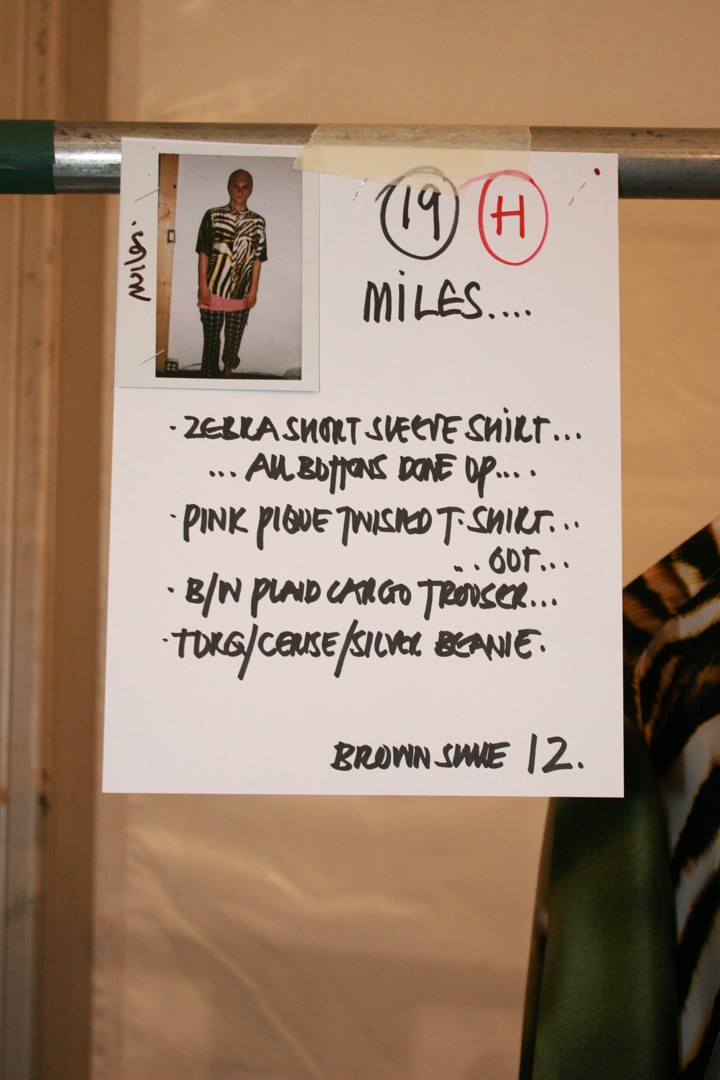 miles.
19 H
MILES....
· ZEBRA SHORT SLEEVE SHIRT...
... ALL BUTTONS DONE UP....
· PINK PIQUE TWISTED T·SHIRT...
... OUT...
· B/W PLAID CARGO TROUSER...
· TURQ/CERISE/SILVER BEANIE.
BROWN 12.